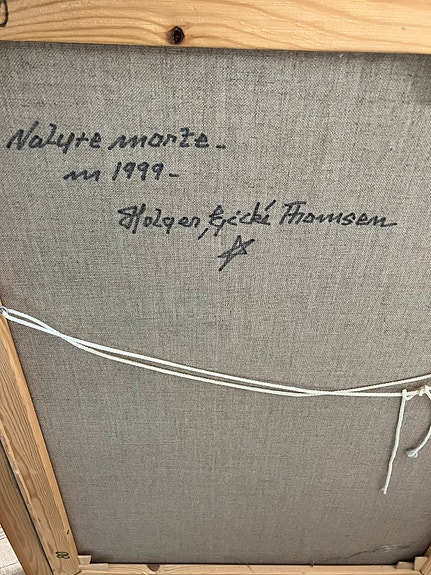 Natyre morte.
m 1999-
Holger, Thomsen
80